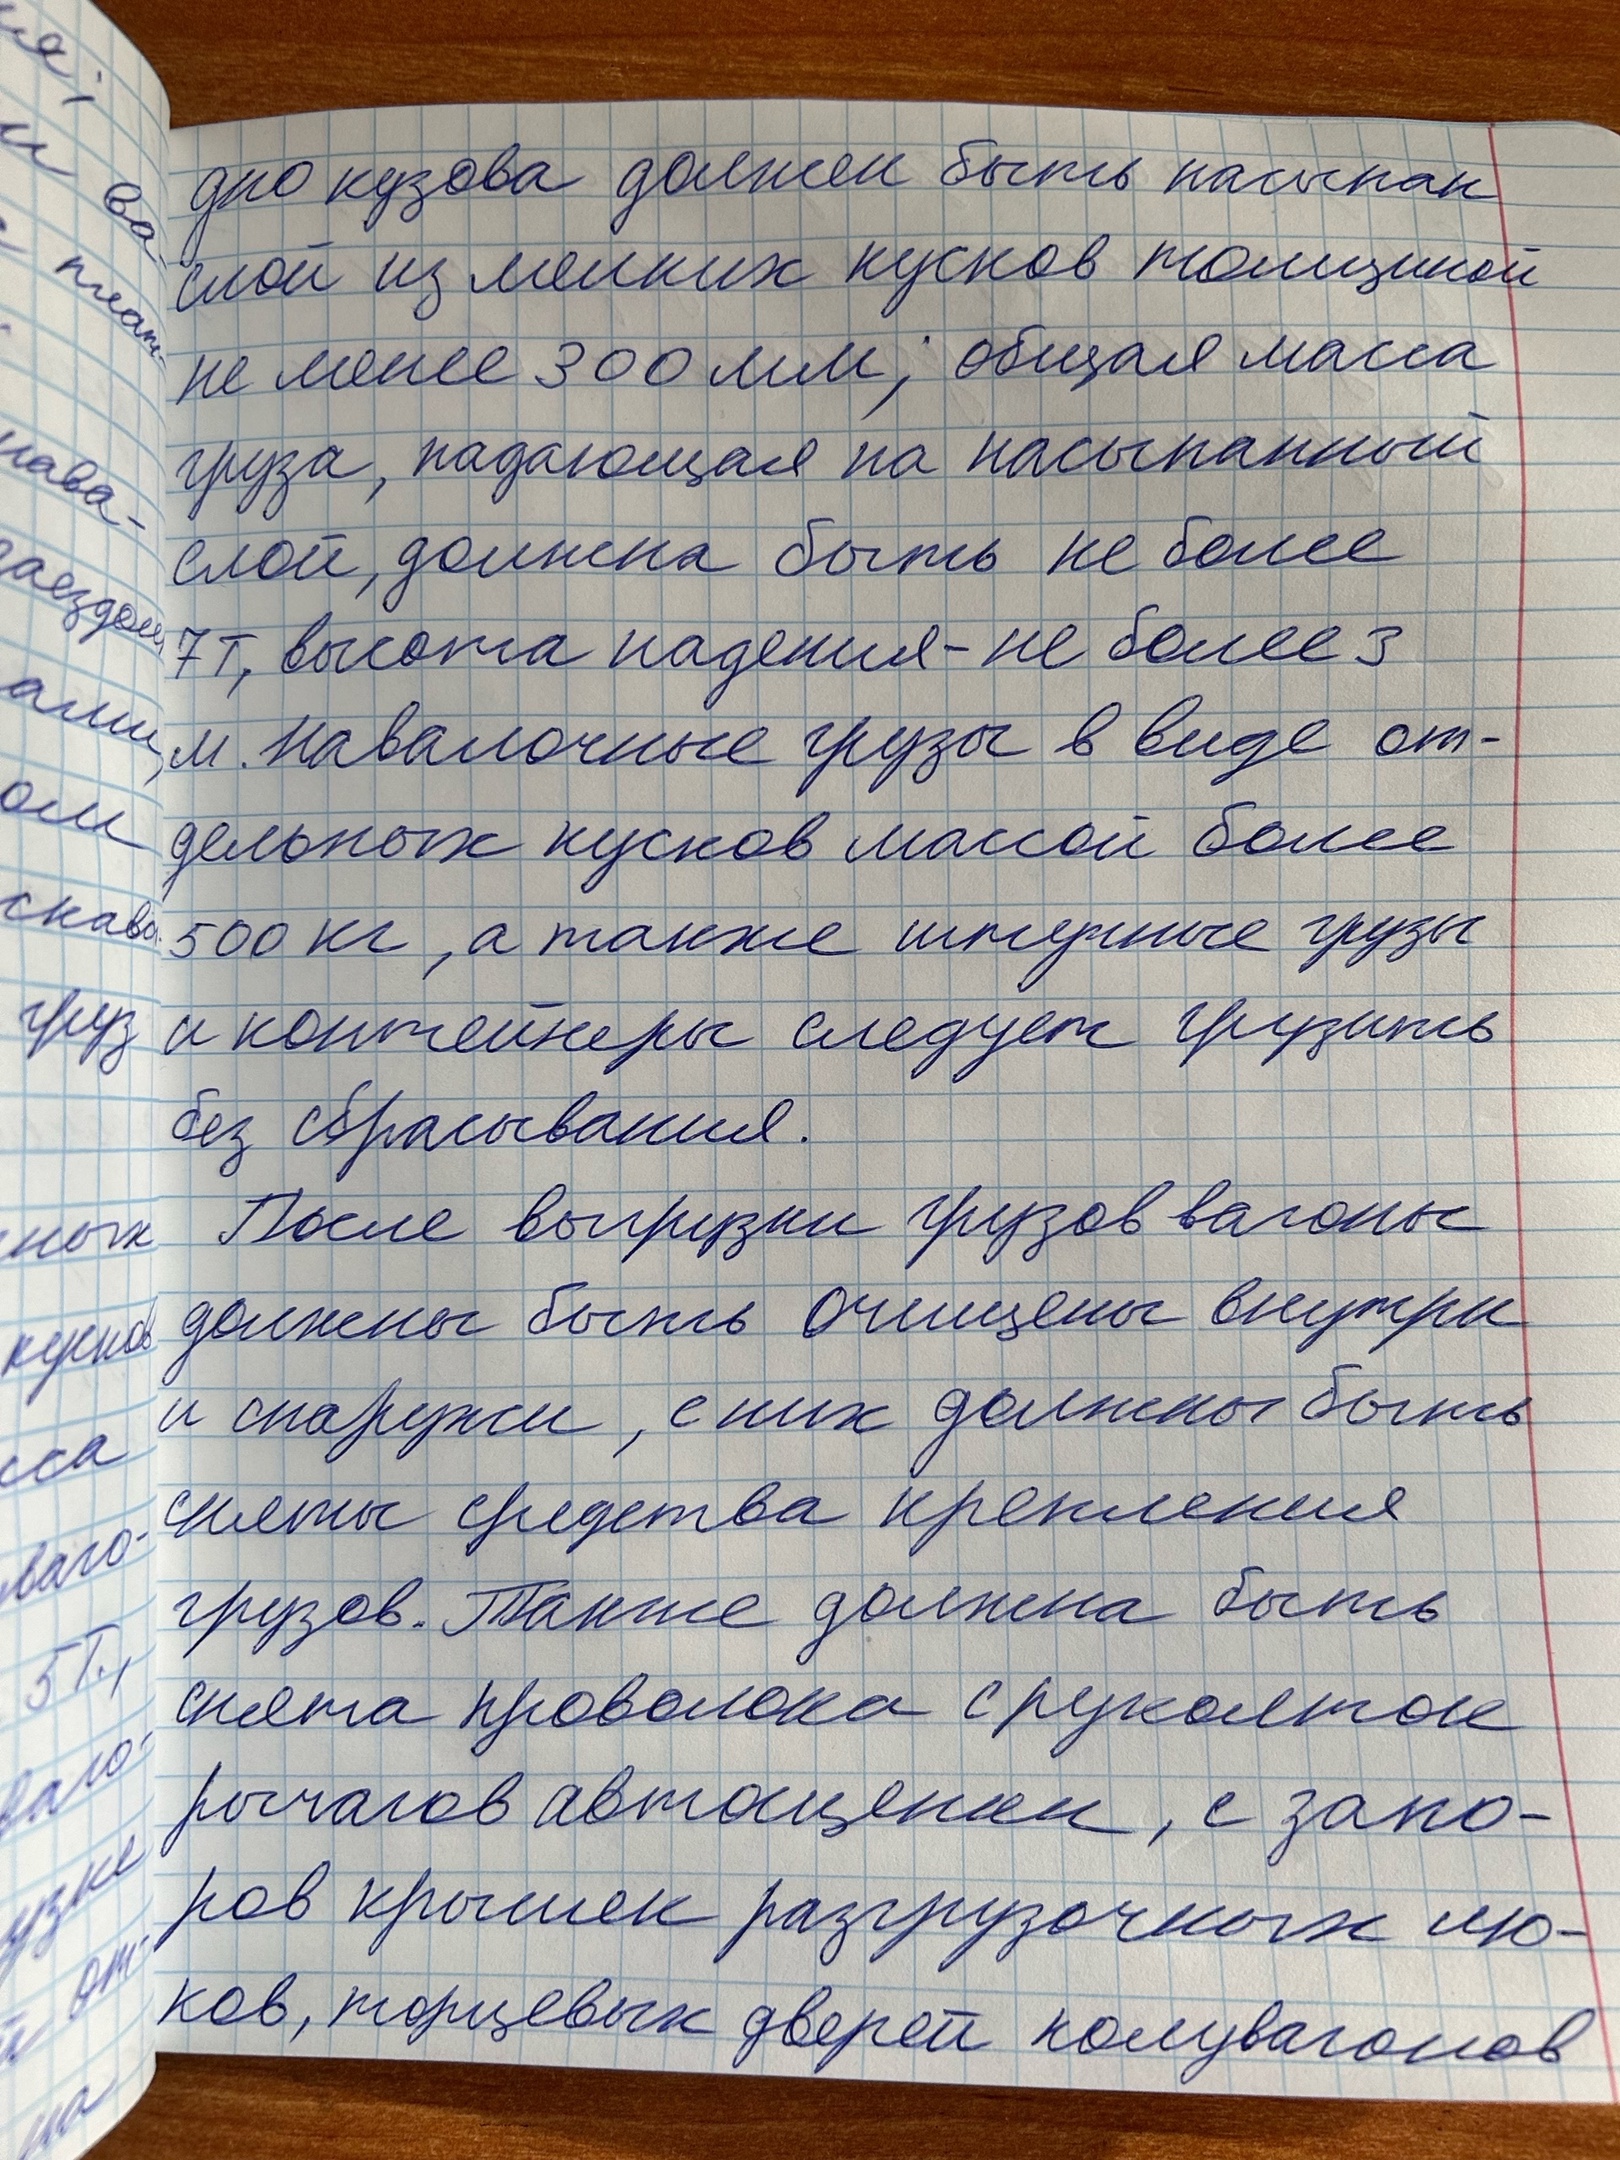 дно кузова должен быть насыпан
слой из мелких кусков толщиной
не менее 300 мм; общая масса
груза, падающая на насыпанный
слой, должна быть не более
7т, высота падения - не более 3
м. Навалочные грузы в виде от-
дельных кусков массой более
500 кг, а также штучные грузы
и контейнеры следует грузить
без сбрасывания.
После выгрузки грузов вагоны
должны быть очищены внутри
и снаружи, с них должны быть
сняты средства крепления
грузов. Также должна быть
снята проволока с рукояток
рычагов автосцепки, с запо-
ров крышек разгрузочных лю-
ков, торцевых дверей полувагонов
груз
кусков
ваго-
5Т.,
ваго-